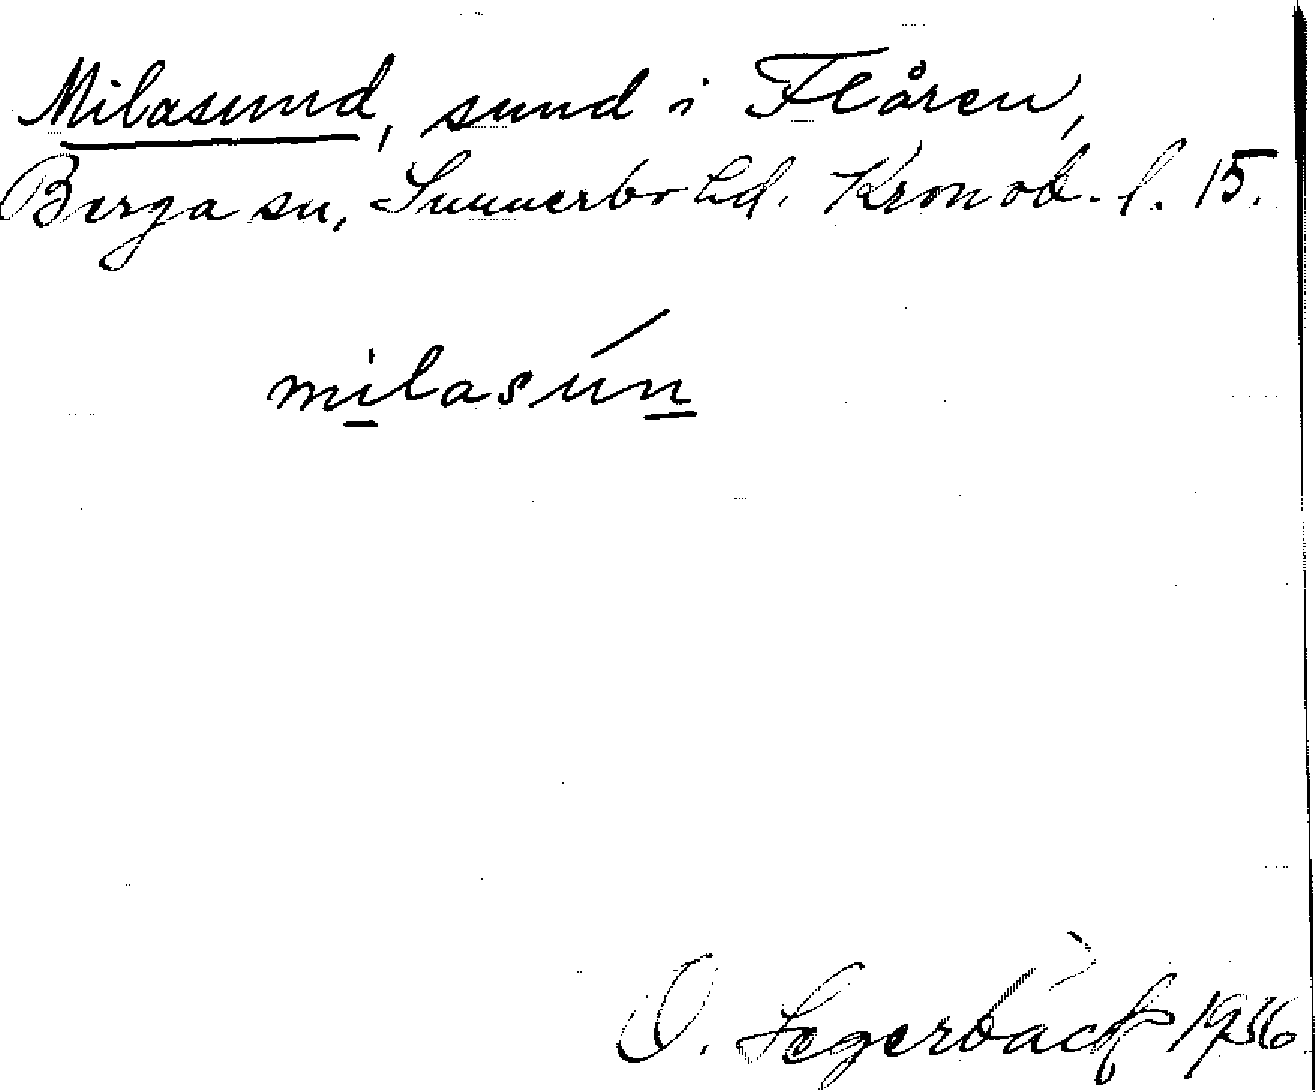 Milasund, sund i Flåren,
Berga sn, Sunnerbo hd. Kronob. l. 15.
milasún
O. Segerbäck 1956